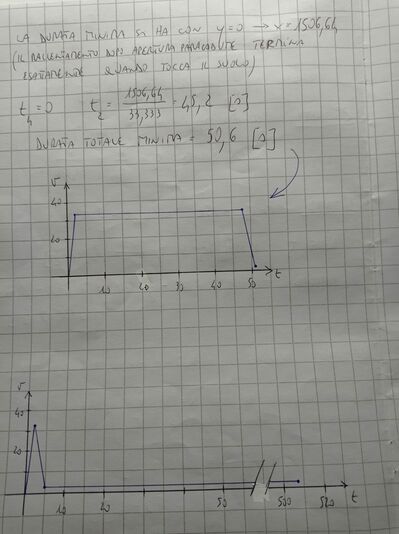 LA DURATA MINIMA SI HA CON y=0 → x=1506,64
(IL RALLENTAMENTO DOPO APERTURA PARACADUTE TERMINA
ESATTAMENTE QUANDO TOCCA IL SUOLO)
t₄=0 t₂ = 1506,64 / 33,333 = 45,2 [s]
DURATA TOTALE MINIMA = 50,6 [s]
v
40
20
10 20 30 40 50 t
v
40
20
10 20 50 500 520 t